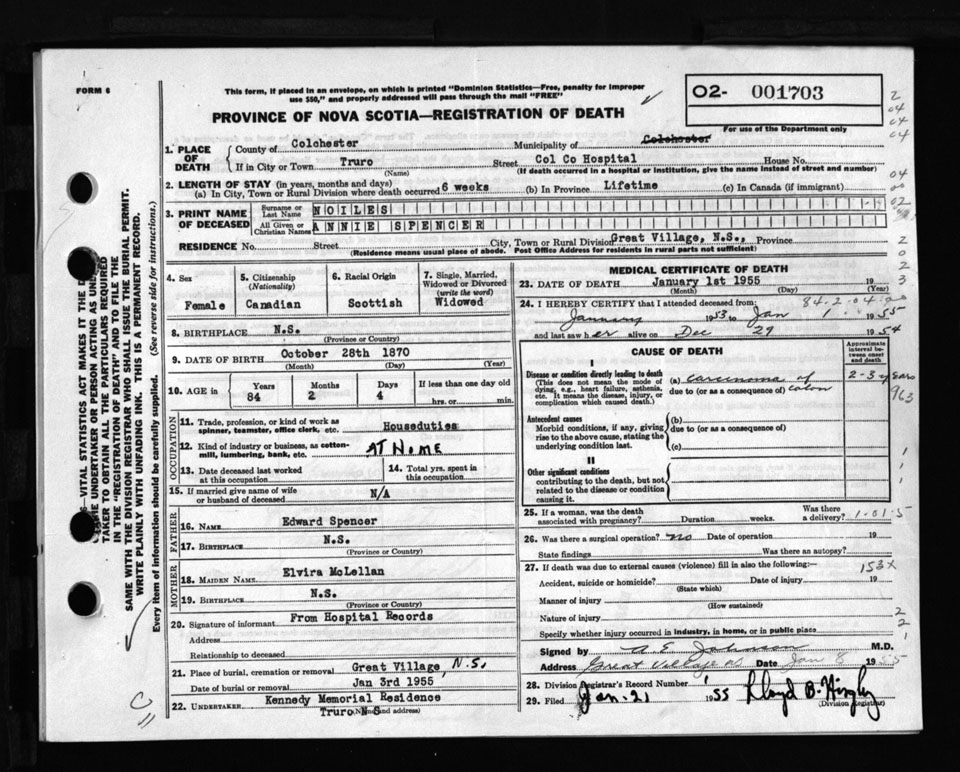 FORM 6
This form, if placed in an envelope, on which is printed "Dominion Statistics—Free, penalty for improper
use $50," and properly addressed will pass through the mail "FREE"
02- 001703
For use of the Department only
PROVINCE OF NOVA SCOTIA—REGISTRATION OF DEATH
1. PLACE OF DEATH
County of Colchester Municipality of Colchester
If in City or Town Truro Street Col Co Hospital House No.
(Name) (If death occurred in a hospital or institution, give the name instead of street and number)
2. LENGTH OF STAY (in years, months and days)
(a) In City, Town or Rural Division where death occurred 6 weeks (b) In Province Lifetime (c) In Canada (if immigrant)
3. PRINT NAME OF DECEASED
Surname or Last Name NOILES
All Given or Christian Names ANNIE SPENCER
RESIDENCE No. Street City, Town or Rural Division Great Village, N.S., Province
(Residence means usual place of abode. Post Office Address for residents in rural parts not sufficient)
4. Sex Female
5. Citizenship (Nationality) Canadian
6. Racial Origin Scottish
7. Single, Married, Widowed or Divorced (write the word) Widowed
8. BIRTHPLACE N.S.
(Province or Country)
9. DATE OF BIRTH October 28th 1870
(Month) (Day) (Year)
10. AGE in Years 84 Months 2 Days 4 If less than one day old hrs. or min.
OCCUPATION
11. Trade, profession, or kind of work as spinner, teamster, office clerk, etc. Houseduties
12. Kind of industry or business, as cotton-mill, lumbering, bank, etc. AT HOME
13. Date deceased last worked at this occupation
14. Total yrs. spent in this occupation
15. If married give name of wife or husband of deceased N/A
FATHER
16. NAME Edward Spencer
17. BIRTHPLACE N.S.
(Province or Country)
MOTHER
18. MAIDEN NAME Elvira McLellan
19. BIRTHPLACE N.S.
(Province or Country)
20. Signature of informant From Hospital Records
Address
Relationship to deceased
21. Place of burial, cremation or removal Great Village N.S.
Date of burial or removal Jan 3rd 1955
22. UNDERTAKER Kennedy Memorial Residence
Truro N S (Name and address)
MEDICAL CERTIFICATE OF DEATH
23. DATE OF DEATH January 1st 1955 19
(Month) (Day)
84-2-04
24. I HEREBY CERTIFY that I attended deceased from:
January 1953 to Jan 1 1955
and last saw her alive on Dec 29 1954
CAUSE OF DEATH
Approximate interval between onset and death
I
Disease or condition directly leading to death
(This does not mean the mode of dying, e.g., heart failure, asthenia, etc. It means the disease, injury, or complication which caused death.)
(a) carcinoma of colon 2-3 years
due to (or as a consequence of)
Antecedent causes
Morbid conditions, if any, giving rise to the above cause, stating the underlying condition last.
(b)
due to (or as a consequence of)
(c)
II
Other significant conditions
contributing to the death, but not related to the disease or condition causing it.
25. If a woman, was the death associated with pregnancy? Duration weeks. Was there a delivery?
1-01-5
26. Was there a surgical operation? no Date of operation 19
State findings Was there an autopsy?
27. If death was due to external causes (violence) fill in also the following:—
153X
Accident, suicide or homicide? Date of injury 19
(State which)
Manner of injury
(How sustained)
Nature of injury
Specify whether injury occurred in industry, in home, or in public place
Signed by A E Johnson M.D.
Address Great Village NS Date Jan 8 1955
28. Division Registrar's Record Number 1
29. Filed Jan. 21 1955 Lloyd B.
(Division Registrar)
VITAL STATISTICS ACT MAKES IT THE
THE UNDERTAKER OR PERSON ACTING AS
TAKER TO OBTAIN ALL THE PARTICULARS REQUIRED
IN THE "REGISTRATION OF DEATH" AND TO FILE THE
SAME WITH THE DIVISION REGISTRAR WHO SHALL ISSUE THE BURIAL PERMIT.
WRITE PLAINLY WITH UNFADING INK. THIS IS A PERMANENT RECORD.
Every item of information should be carefully supplied. (See reverse side for instructions.)